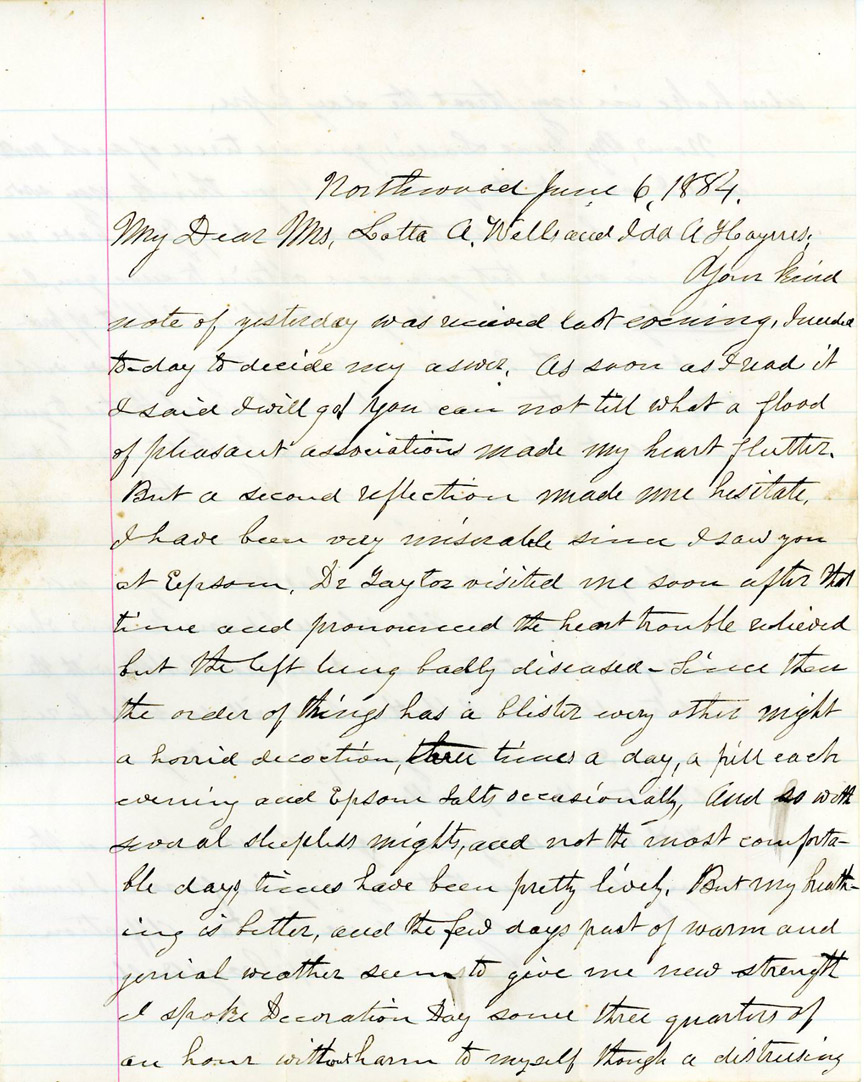 Northwood June 6, 1884.
My Dear Ms, Lotta A. Wells and Ida A Haynes;
Your kind
note of yesterday was recieved last evening. I needed
to-day to decide my aswer. As soon as I read it
I said I will go! You can not tell what a flood
of pleasant associations made my heart flutter.
But a second reflection made me hesitate.
I have been very miserable since I saw you
at Epsom. Dr Taylor visited me soon after that
time and pronounced the heart trouble relieved
but the left lung badly diseased - Since then
the order of things has a blister every other night
a horrid decoction, three times a day, a pill each
evening and Epsom Salts occasionally, And so with
several sleepless nights, and not the most comforta-
ble days, times have been pretty lively. But my breath-
ing is better, and the few days past of warm and
genial weather seems to give me new strength
I spoke Decoration Day some three quarters of
an hour without harm to myself though a distressing